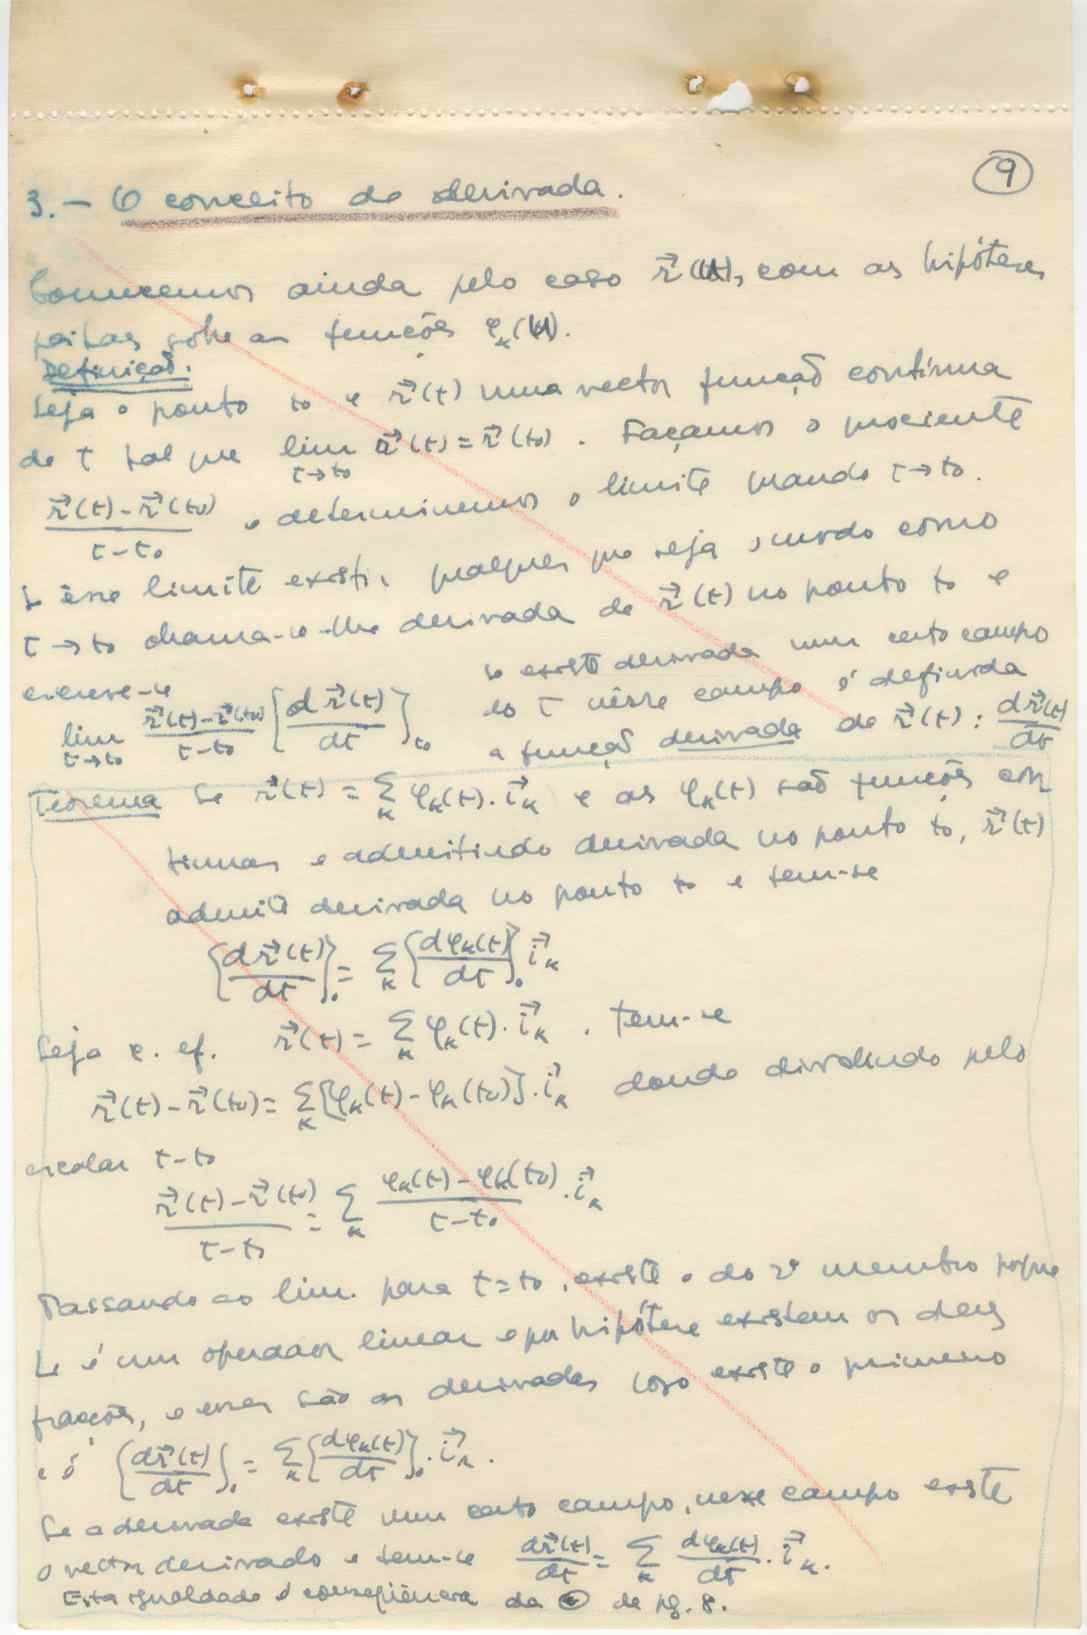 9
3. — O conceito de derivada.
Comecemos ainda pelo caso r⃗(t), com as hipóteses
feitas sôbre as funções φₖ(t).
Definição.
Seja o ponto t₀ e r⃗(t) uma vector função contínua
de t tal que lim_{t→t₀} r⃗(t) = r⃗(t₀). Façamos o quociente
(r⃗(t) - r⃗(t₀))/(t - t₀) e determinemos o limite quando t→t₀.
Se êsse limite existir, qualquer que seja o modo como
t→t₀ chama-se-lhe derivada de r⃗(t) no ponto t₀ e
escreve-se
lim_{t→t₀} (r⃗(t) - r⃗(t₀))/(t - t₀) [d r⃗(t)/dt]_{t₀}
Se existe derivada num certo campo
de t nêsse campo é definida
a função derivada de r⃗(t): dr⃗(t)/dt
Teorema Se r⃗(t) = Σₖ φₖ(t). i⃗ₖ e as φₖ(t) são funções con
tínuas e admitindo derivada no ponto t₀, r⃗(t)
admite derivada no ponto t₀ e tem-se
[dr⃗(t)/dt]₀ = Σₖ [dφₖ(t)/dt]₀ i⃗ₖ
Seja c. ef. r⃗(t) = Σₖ φₖ(t). i⃗ₖ. Tem-se
r⃗(t) - r⃗(t₀) = Σₖ [φₖ(t) - φₖ(t₀)]. i⃗ₖ donde dividindo pelo
escalar t-t₀
(r⃗(t) - r⃗(t₀))/(t - t₀) = Σₖ (φₖ(t) - φₖ(t₀))/(t - t₀). i⃗ₖ
Passando ao lim. para t=t₀, existe o do 2º membro porque
L é um operador linear e por hipótese existem os das
fracções, e esses são as derivadas logo existe o primeiro
e é [dr⃗(t)/dt]₀ = Σₖ [dφₖ(t)/dt]₀. i⃗ₖ.
Se a derivada existe num certo campo, nesse campo existe
o vector derivado e tem-se dr⃗(t)/dt = Σₖ dφₖ(t)/dt. i⃗ₖ.
Esta igualdade é conseqüência da de pg. 8.